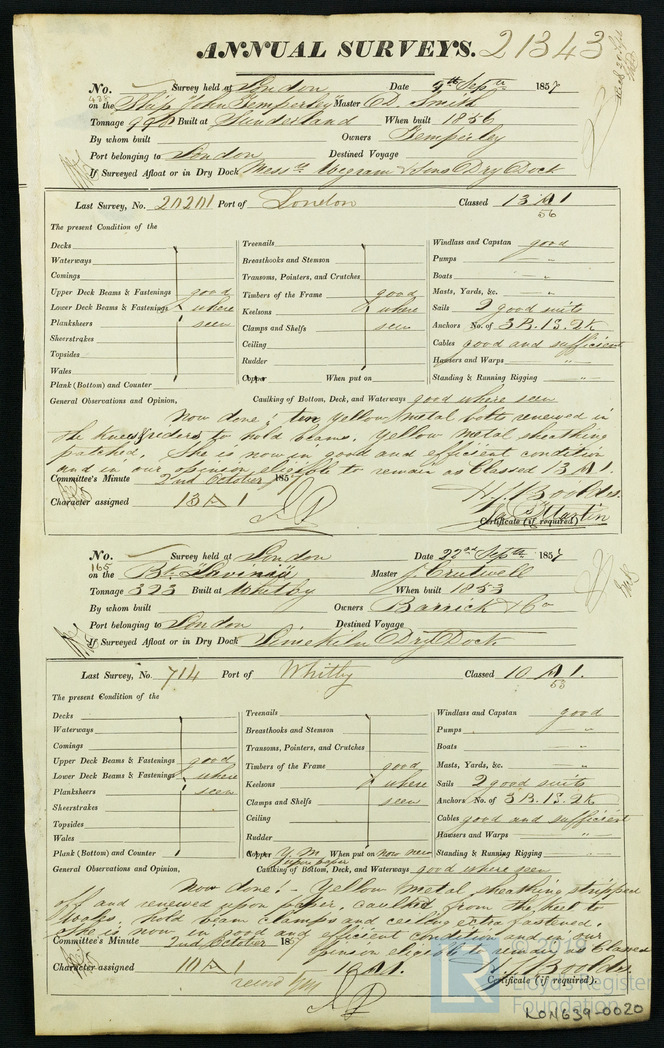 ANNUAL SURVEYS. 21343
No. Survey held at London Date 9th Septr 1857
428 on the Ship "John Temperley" Master D. Smith
Tonnage 990 Built at Sunderland When built 1856
By whom built Owners Temperley
Port belonging to London Destined Voyage
If Surveyed Afloat or in Dry Dock Messrs Wigram & Sons Dry Dock
Last Survey, No. Port of London Classed 13 A 1
56
The present Condition of the
Decks Treenails Windlass and Capstan good
Waterways Breasthooks and Stemson Pumps "
Comings Transoms, Pointers, and Crutches Boats "
Upper Deck Beams & Fastenings good Timbers of the Frame good Masts, Yards, &c. "
Lower Deck Beams & Fastenings where Keelsons where Sails 2 good suits
Planksheers seen Clamps and Shelfs seen Anchors No. of 3 B. 1 S. 2 K
Sheerstrakes Ceiling Cables good and sufficient
Topsides Rudder Hawsers and Warps "
Wales Copper When put on Standing & Running Rigging "
Plank (Bottom) and Counter
General Observations and Opinion, Caulking of Bottom, Deck, and Waterways good where seen
Now done: ten yellow metal bolts renewed in
the knees riders to hold beams, yellow metal sheathing
patched. She is now in good and efficient condition
and in our opinion eligible to remain as Classed 13 A 1.
Committee's Minute 2nd October 185
Character assigned 13 A 1
Martin
Certificate (if required)
No. Survey held at London Date 22nd Septr 1857
165 on the Bk "Lavinia" Master J. Crutwell
Tonnage 323 Built at Whitby When built 1853
By whom built Owners Barrick & Co
Port belonging to London Destined Voyage
If Surveyed Afloat or in Dry Dock Limekiln Dry Dock
Last Survey, No. 714 Port of Whitby Classed 10 A 1.
53
The present Condition of the
Decks Treenails Windlass and Capstan good
Waterways Breasthooks and Stemson Pumps "
Comings Transoms, Pointers, and Crutches Boats "
Upper Deck Beams & Fastenings good Timbers of the Frame good Masts, Yards, &c. "
Lower Deck Beams & Fastenings where Keelsons where Sails 2 good suits
Planksheers seen Clamps and Shelfs seen Anchors No. of 3 B. 1 S. 2 K
Sheerstrakes Ceiling Cables good and sufficient
Topsides Rudder Hawsers and Warps "
Wales Copper Y. M. upon paper When put on now new Standing & Running Rigging "
Plank (Bottom) and Counter
General Observations and Opinion, Caulking of Bottom, Deck, and Waterways good where seen
Now done: - Yellow metal sheathing stripped
off and renewed upon paper, caulked from the keel to
hold beam clamps and ceiling extra fastened.
She is now in good and efficient condition and in our
opinion eligible to remain as Classed
Committee's Minute 2nd October 1857
Character assigned 10 A 1 10 A 1.
record YM
Certificate (if required).
© 2019
LR Lloyd's Register Foundation
LON639-0020